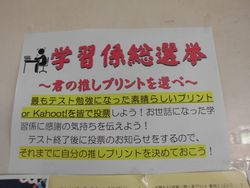 学習係総選挙
～君の推しプリントを選べ～
最もテスト勉強になった素晴らしいプリント
or Kahoot!を皆で投票しよう！お世話になった学
習係に感謝の気持ちを伝えよう！
テスト終了後に投票のお知らせをするので、
それまでに自分の推しプリントを決めておこう！